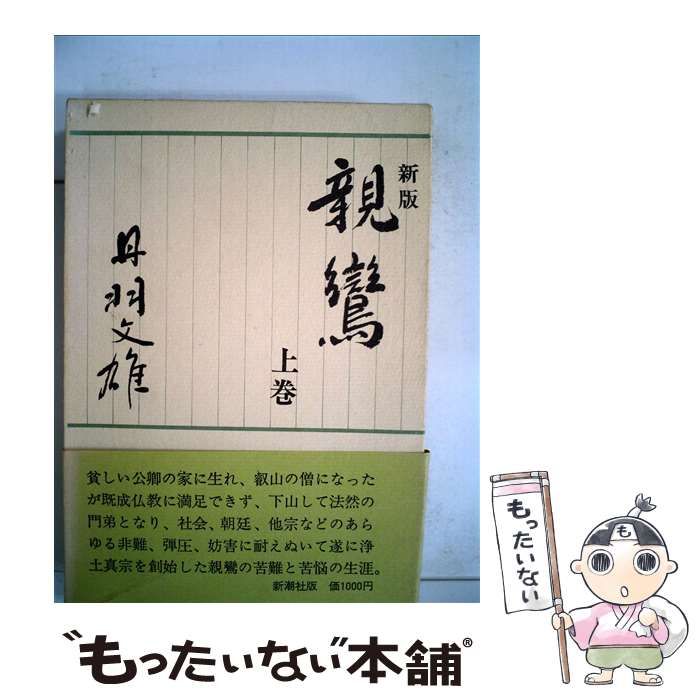 新版
親鸞
上巻
丹羽文雄
貧しい公卿の家に生れ、叡山の僧になった
が既成仏教に満足できず、下山して法然の
門弟となり、社会、朝廷、他宗などのあら
ゆる非難、弾圧、妨害に耐えぬいて遂に浄
土真宗を創始した親鸞の苦難と苦悩の生涯。
新潮社版 価1000円
もったいない
"もったいない"本舗®